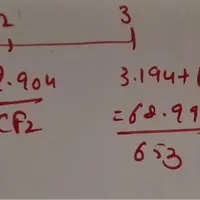 2 3
.904 3.194+
CF2 =68.99
653